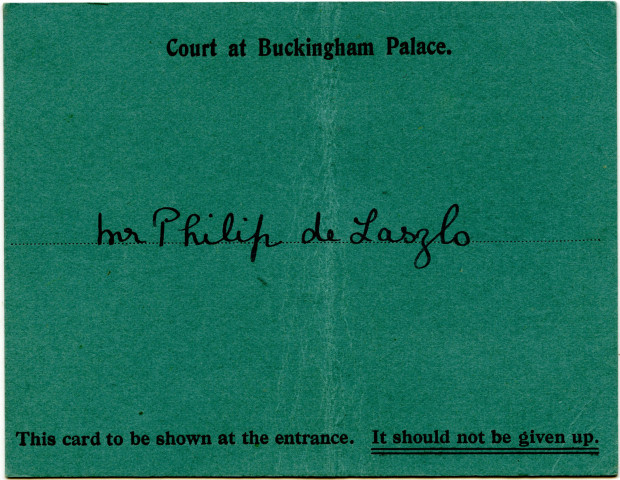 Court at Buckingham Palace.
Mr Philip de Laszlo
This card to be shown at the entrance. It should not be given up.